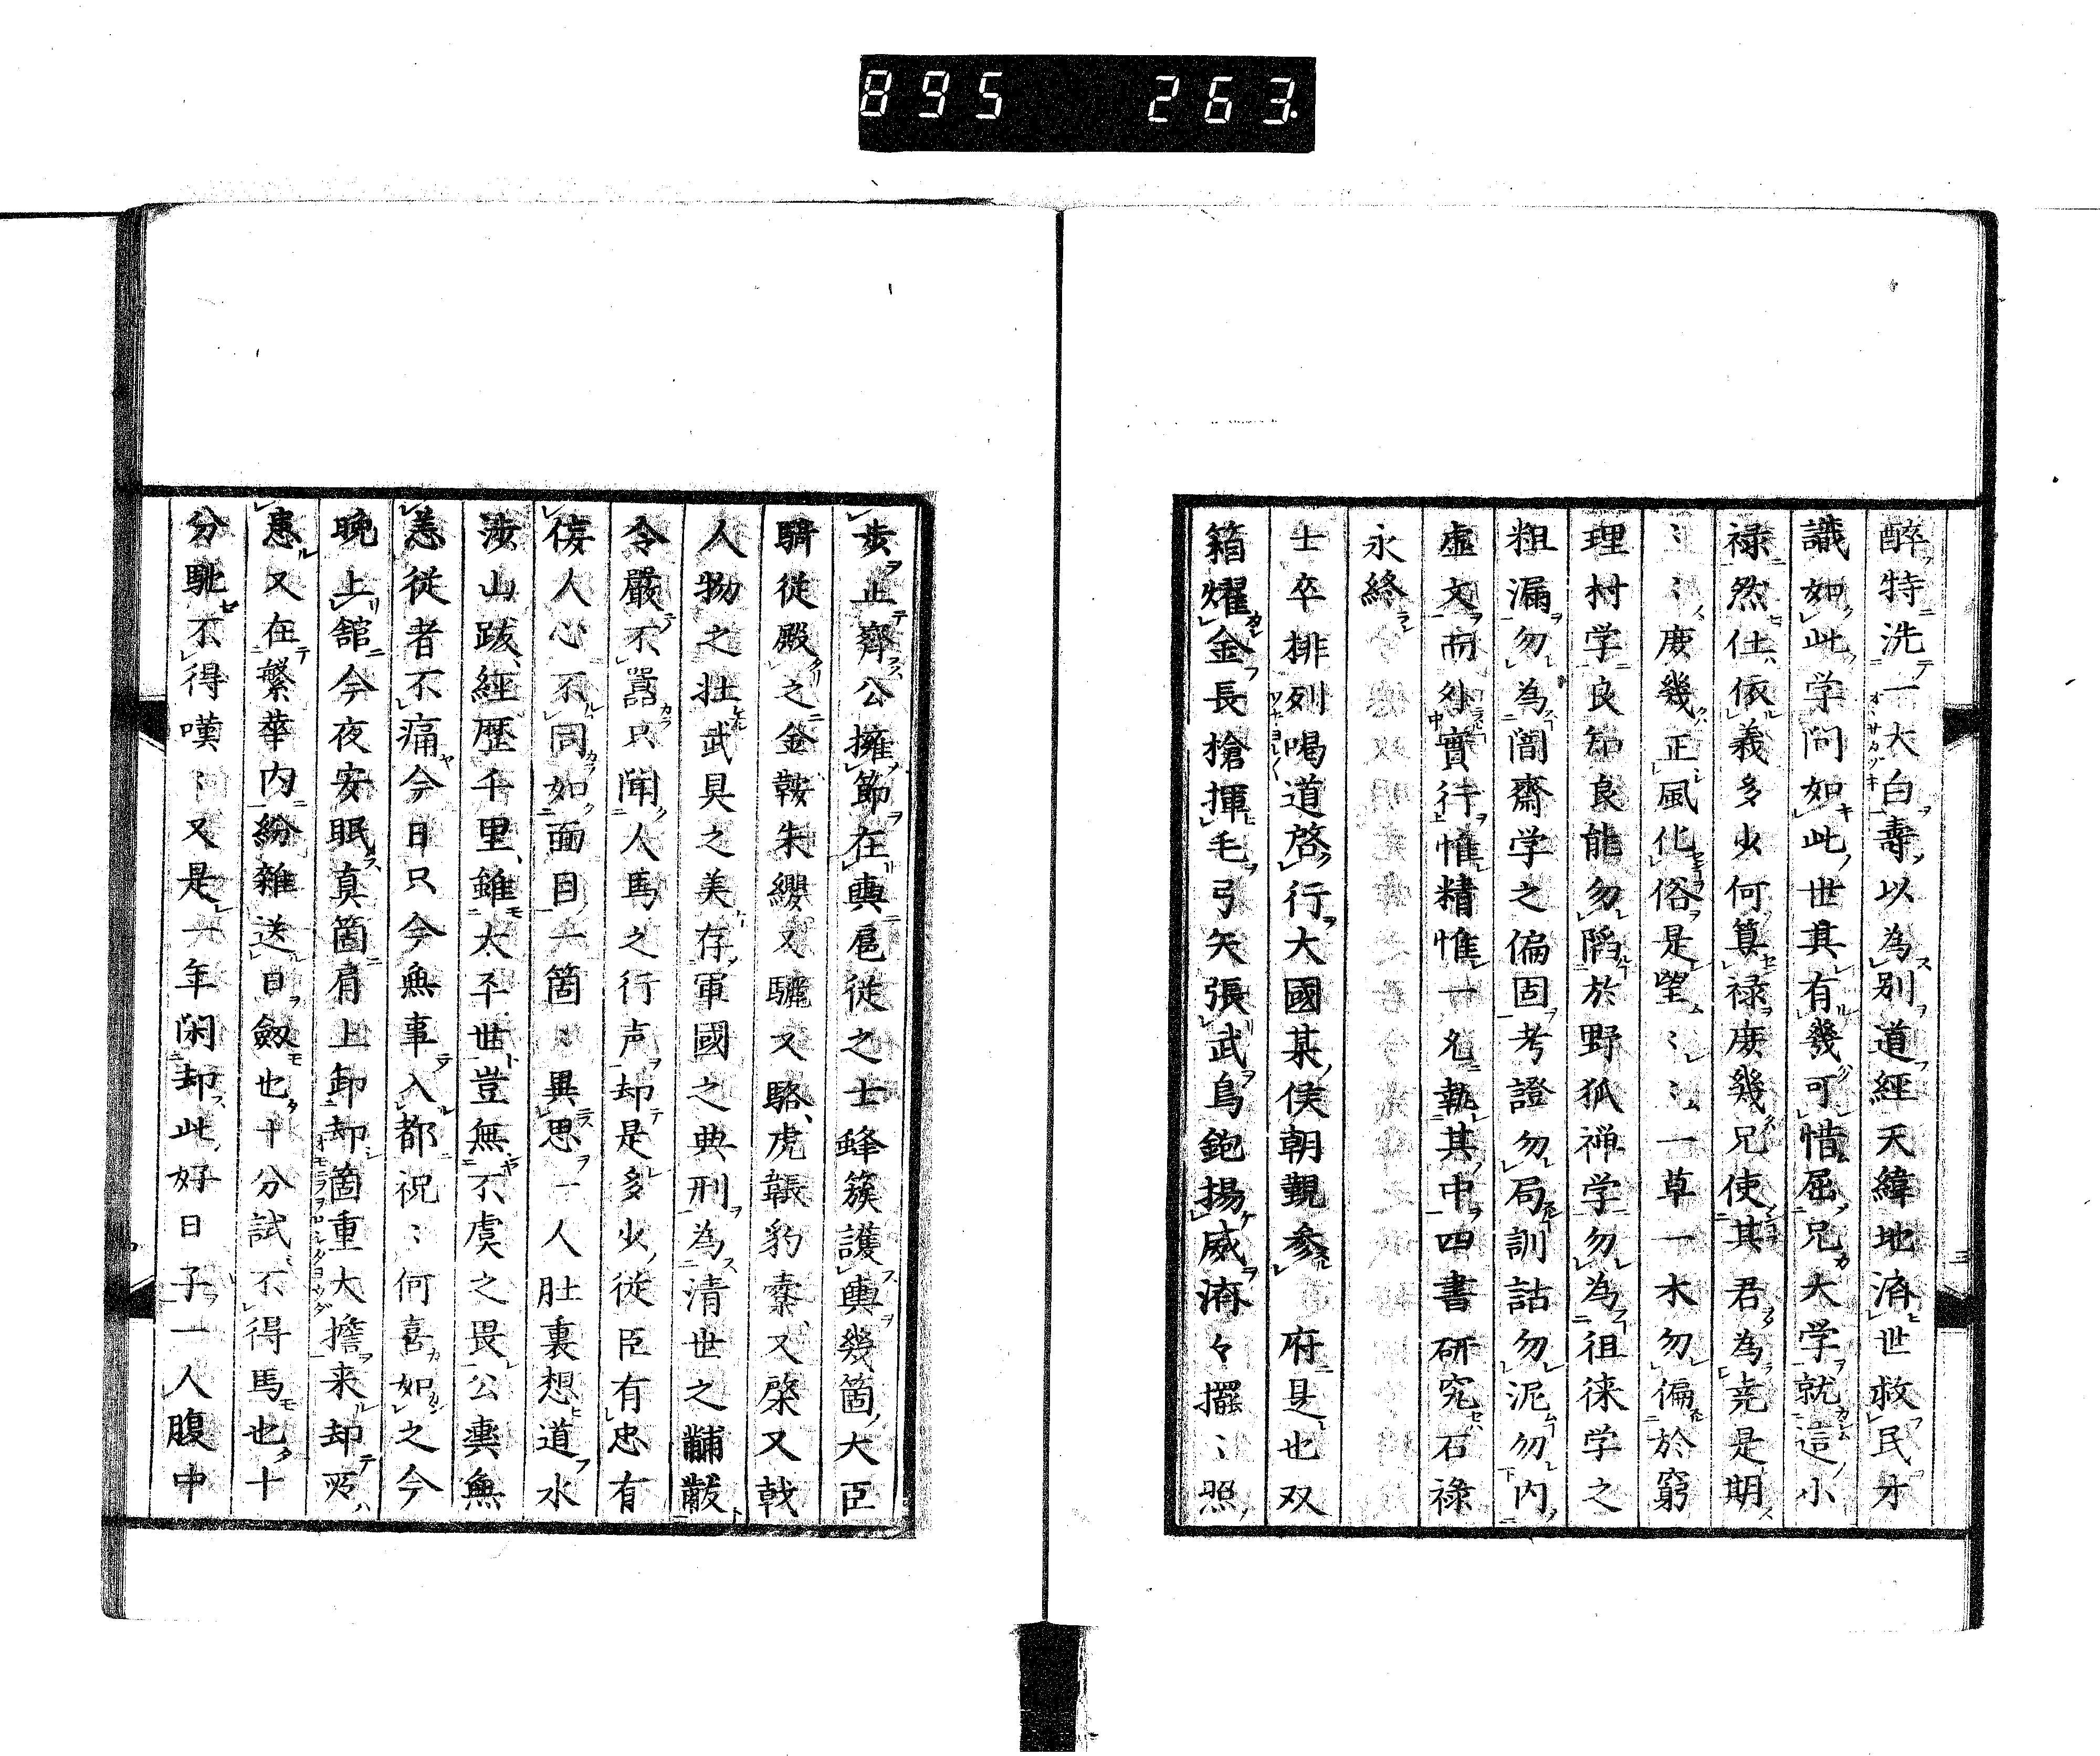 895 263
醉特洗一大白壽以為別道經天緯地済世救民才
識如此学問如此世其有幾可惜屈兄大学就這小
禄然仕依義多少何算禄庶幾兄使其君為尭是期
〻〻庶幾正風化俗是望〻〻一草一木勿偏於窮
理村学良知良能勿陷於野狐禅学勿為徂徠学之
粗漏勿為闇齋学之偏固考證勿局訓詁勿泥勿内
虚文而外實行惟精惟一允執其中四書研究石禄
永終
士卒排列喝道啓行大國某侯朝覲参府是也双
箱燿金長槍揮毛弓矢張武鳥銃揚威済々擺〻照
歩止齊公擁節在輿扈従之士蜂簇護輿幾箇大臣
騎従殿之金鞍朱纓又驪又駱虎韔豹櫜又棨又戟
人物之壮武具之美存軍國之典刑為清世之黼黻
令嚴不囂只聞人馬之行声却是多少従臣有忠有
侫人心不同如面目一箇〻異思一人肚裏想道水
渉山跋經歴千里雖太平世豈無不虞之畏公輿無
恙従者不痛今日只今無事入都祝〻何喜如之今
晩上舘今夜安眠真箇肩上卸却箇重大擔来却又
患又在繁華内紛雜送日劔也十分試不得馬也十
分馳不得嘆〻又是一年閑却此好日子一人腹中